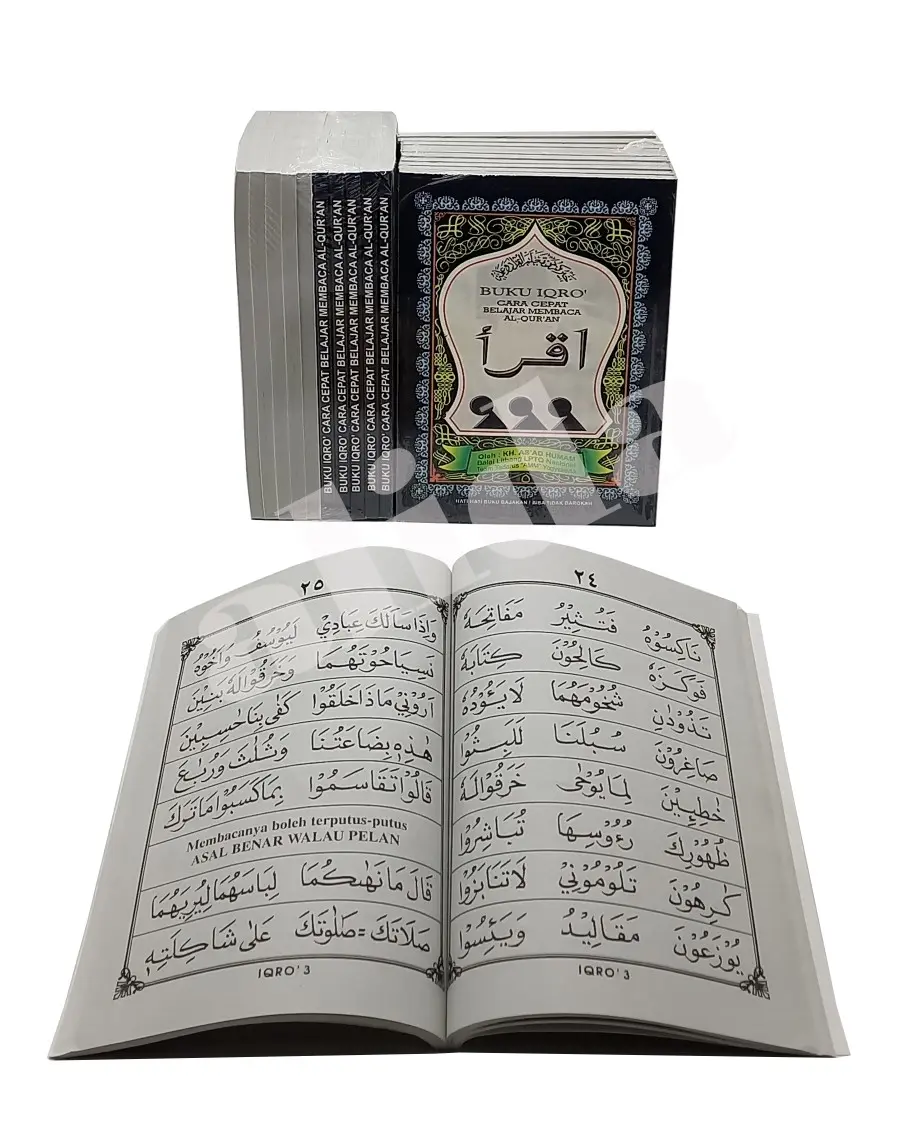 BUKU IQRO' CARA CEPAT BELAJAR MEMBACA AL-QUR'AN
BUKU IQRO' CARA CEPAT BELAJAR MEMBACA AL-QUR'AN
BUKU IQRO' CARA CEPAT BELAJAR MEMBACA AL-QUR'AN
BUKU IQRO' CARA CEPAT BELAJAR MEMBACA AL-QUR'AN
BUKU IQRO' CARA CEPAT BELAJAR MEMBACA AL-QUR'AN
BUKU IQRO'
CARA CEPAT
BELAJAR MEMBACA
AL-QUR'AN
اقرأ
Oleh : KH. AS'AD HUMAM
Balai Litbang LPTQ Nasional
Team Tadarus "AMM" Yogyakarta
HATI-HATI BUKU BAJAKAN ! BISA TIDAK BAROKAH
alida
٢٤
نَاكِسُوْهُ فَتُثِيْرُ مَفَاتِحَهُ
فَوَكَزَهُ كَالِحُوْنَ كِتَابَهُ
تَذُوْدَانِ شُحُوْمَهُمَا لَايَؤُدُهُ
صَاغِرُوْنَ سُبُلَنَا لَلَبِثُوْا
خٰطِـِٕيْنَ لِمَا يُوْحٰى خَرَقُوْالَهُ
ظُهُوْرِكَ رُءُوْسِهَا تُبَاشِرُوْا
كٰرِهُوْنَ تَلُوْمُوْنِيْ لَاتَنَابَزُوْا
يُوْزَعُوْنَ مَقَالِيْدُ وَيَئِسُوْا
IQRO' 3
٢٥
وَاِذَاسَاَلَكَ عِبَادِيْ لَيُوْسُفُ وَاَخُوْهُ
نَسِيَاحُوْتَهُمَا وَخَرَقُوْالَهُ بَنِيْنَ
اَرُوْنِيْ مَاذَاخَلَقُوْا كَفٰى بِنَاحٰسِبِيْنَ
هٰذِهٖ بِضَاعَتُنَا وَثُلٰثَ وَرُبٰعَ
قَالُوْاتَقَاسَمُوْا بِمَاكَسَبُوْامَاتَرَكَ
Membacanya boleh terputus-putus
ASAL BENAR WALAU PELAN
قَالَ مَانَهٰىكُمَا لِبَاسَهُمَالِيُرِيَهُمَا
صَلَاتَكَ = صَلٰوتَكَ عَلٰى شَاكِلَتِهٖ
IQRO' 3